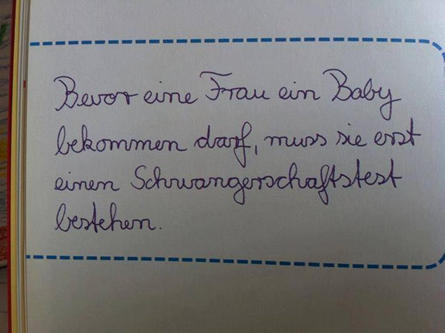 Bevor eine Frau ein Baby
bekommen darf, muss sie erst
einen Schwangerschaftstest
bestehen.